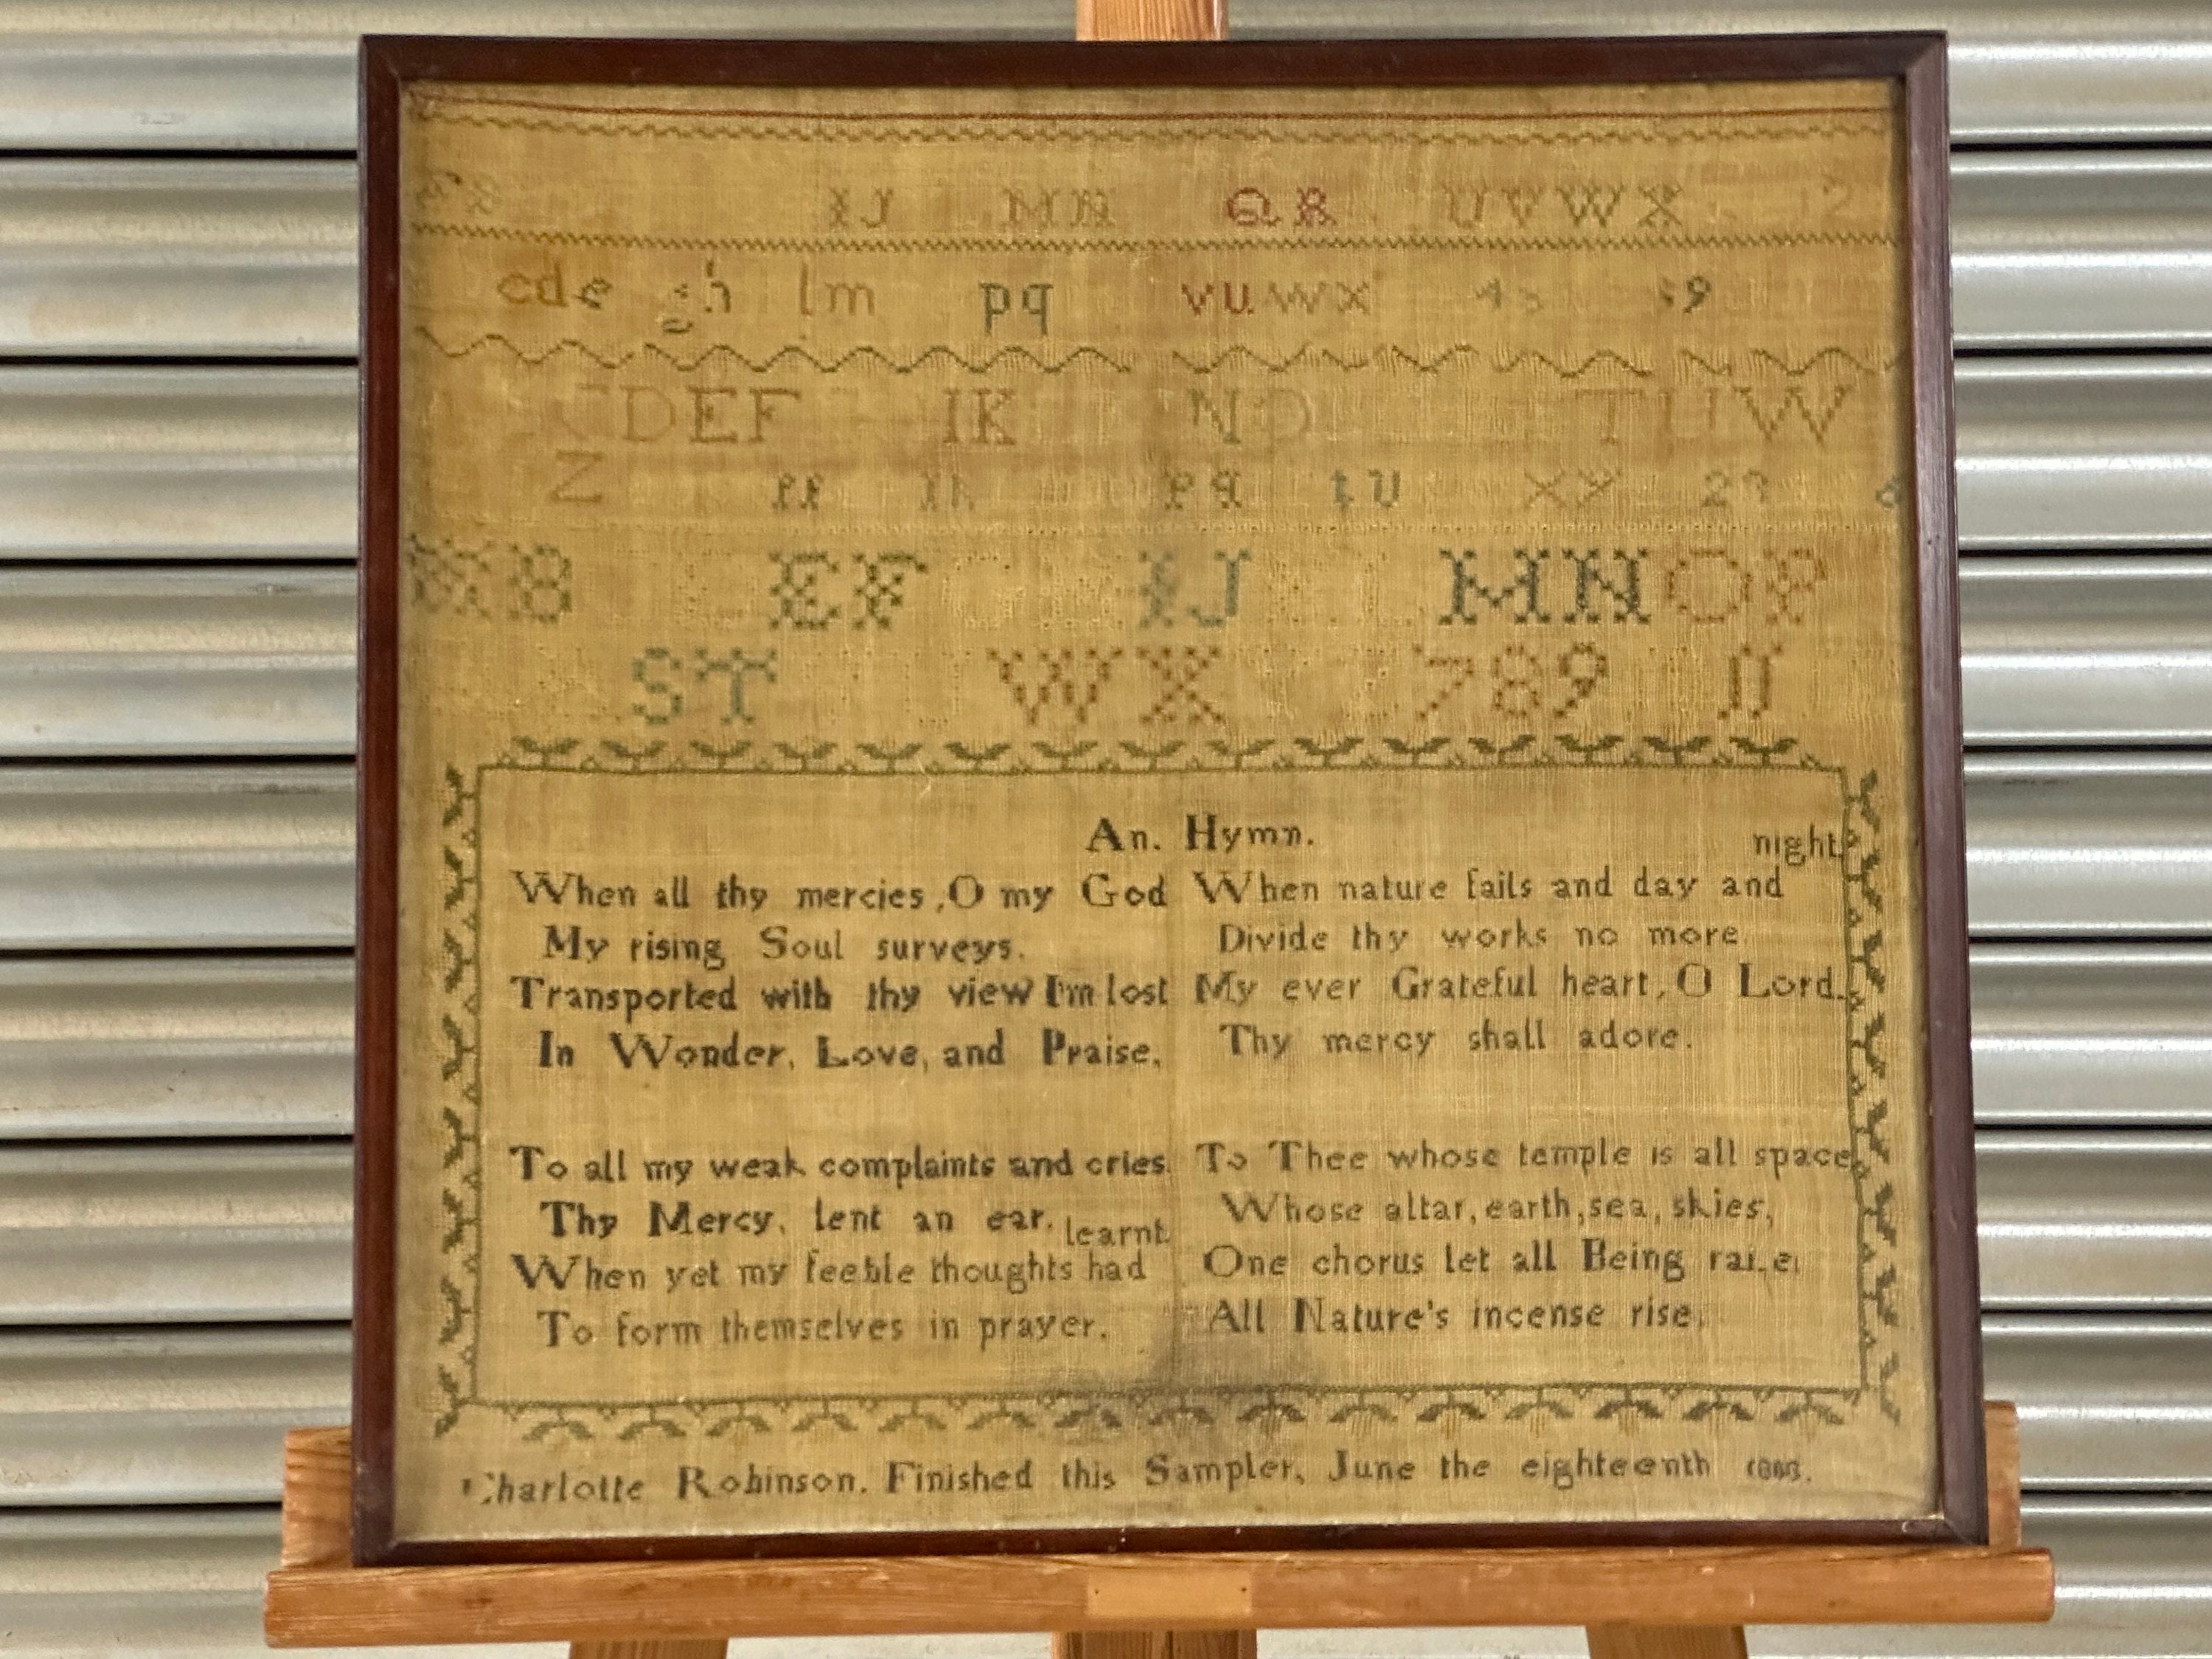 IJ MN QR UVWX 12
cde gh lm pq vu wx 9
CDEF IK NO TUW
Z pq tu xy 23 6
B EF IJ MNOP
ST WX 789 JJ
An. Hymn.
When all thy mercies, O my God
My rising Soul surveys.
Transported with thy view I'm lost
In Wonder, Love, and Praise,
To all my weak complaints and cries
Thy Mercy, lent an ear.
When yet my feeble thoughts had learnt
To form themselves in prayer.
When nature fails and day and night
Divide thy works no more
My ever Grateful heart, O Lord.
Thy mercy shall adore.
To Thee whose temple is all space
Whose altar, earth, sea, skies,
One chorus let all Being raise
All Nature's incense rise
Charlotte Robinson. Finished this Sampler, June the eighteenth